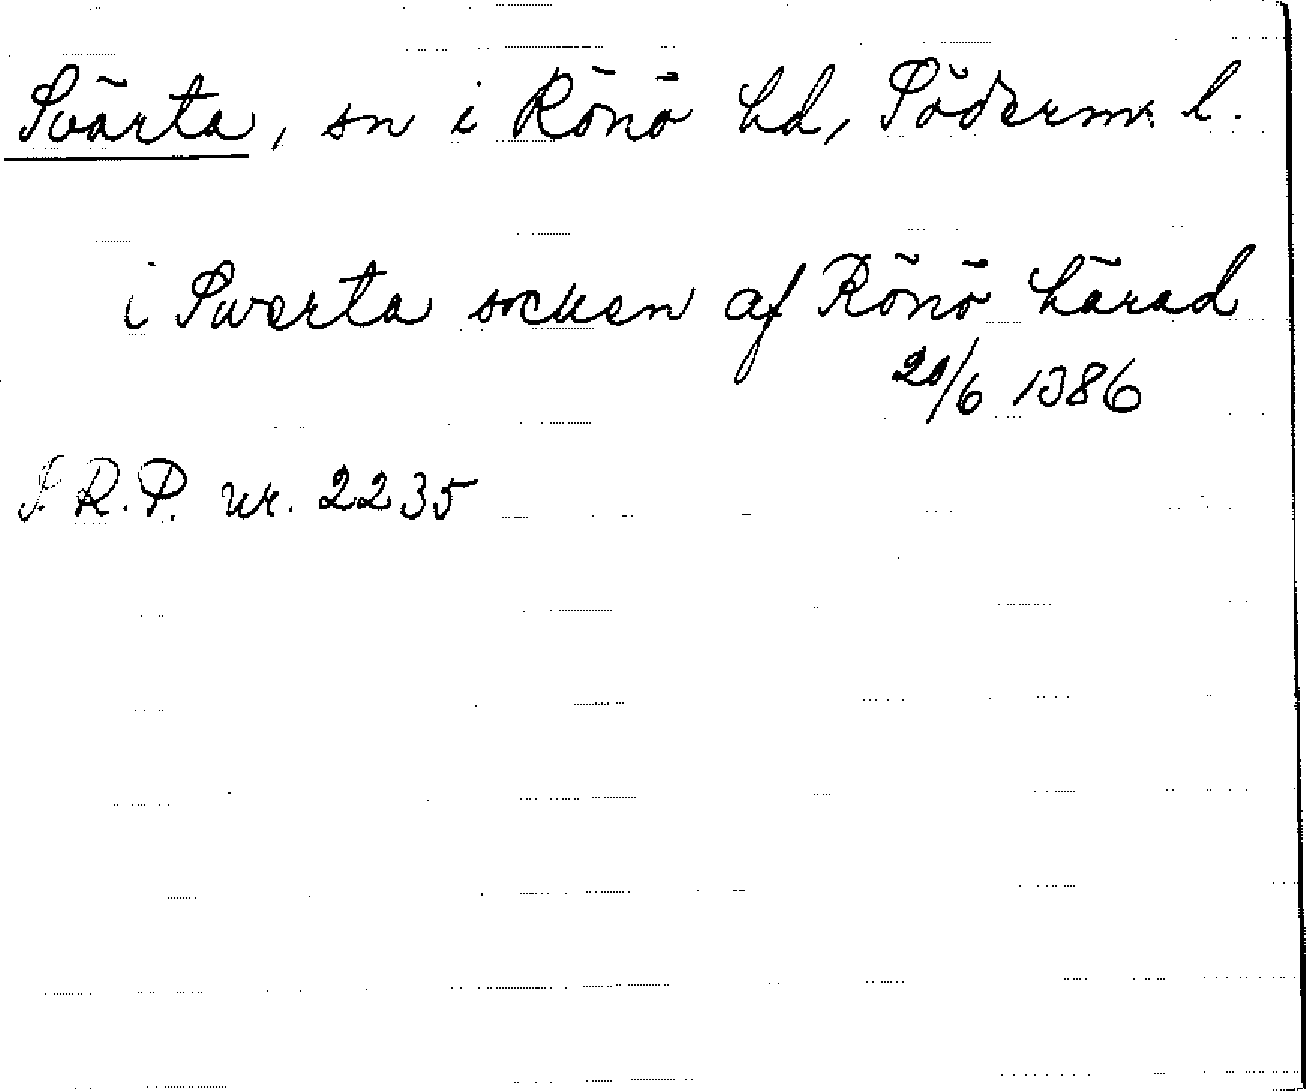 Svärta, sn i Rönö hd, Söderm. l.
i Swerta socken af Rönö härad
20/6 1386
S.R.P. nr. 2235